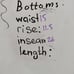 Bottoms.
waist: 15
rise: 11.5
inseam 26
length: